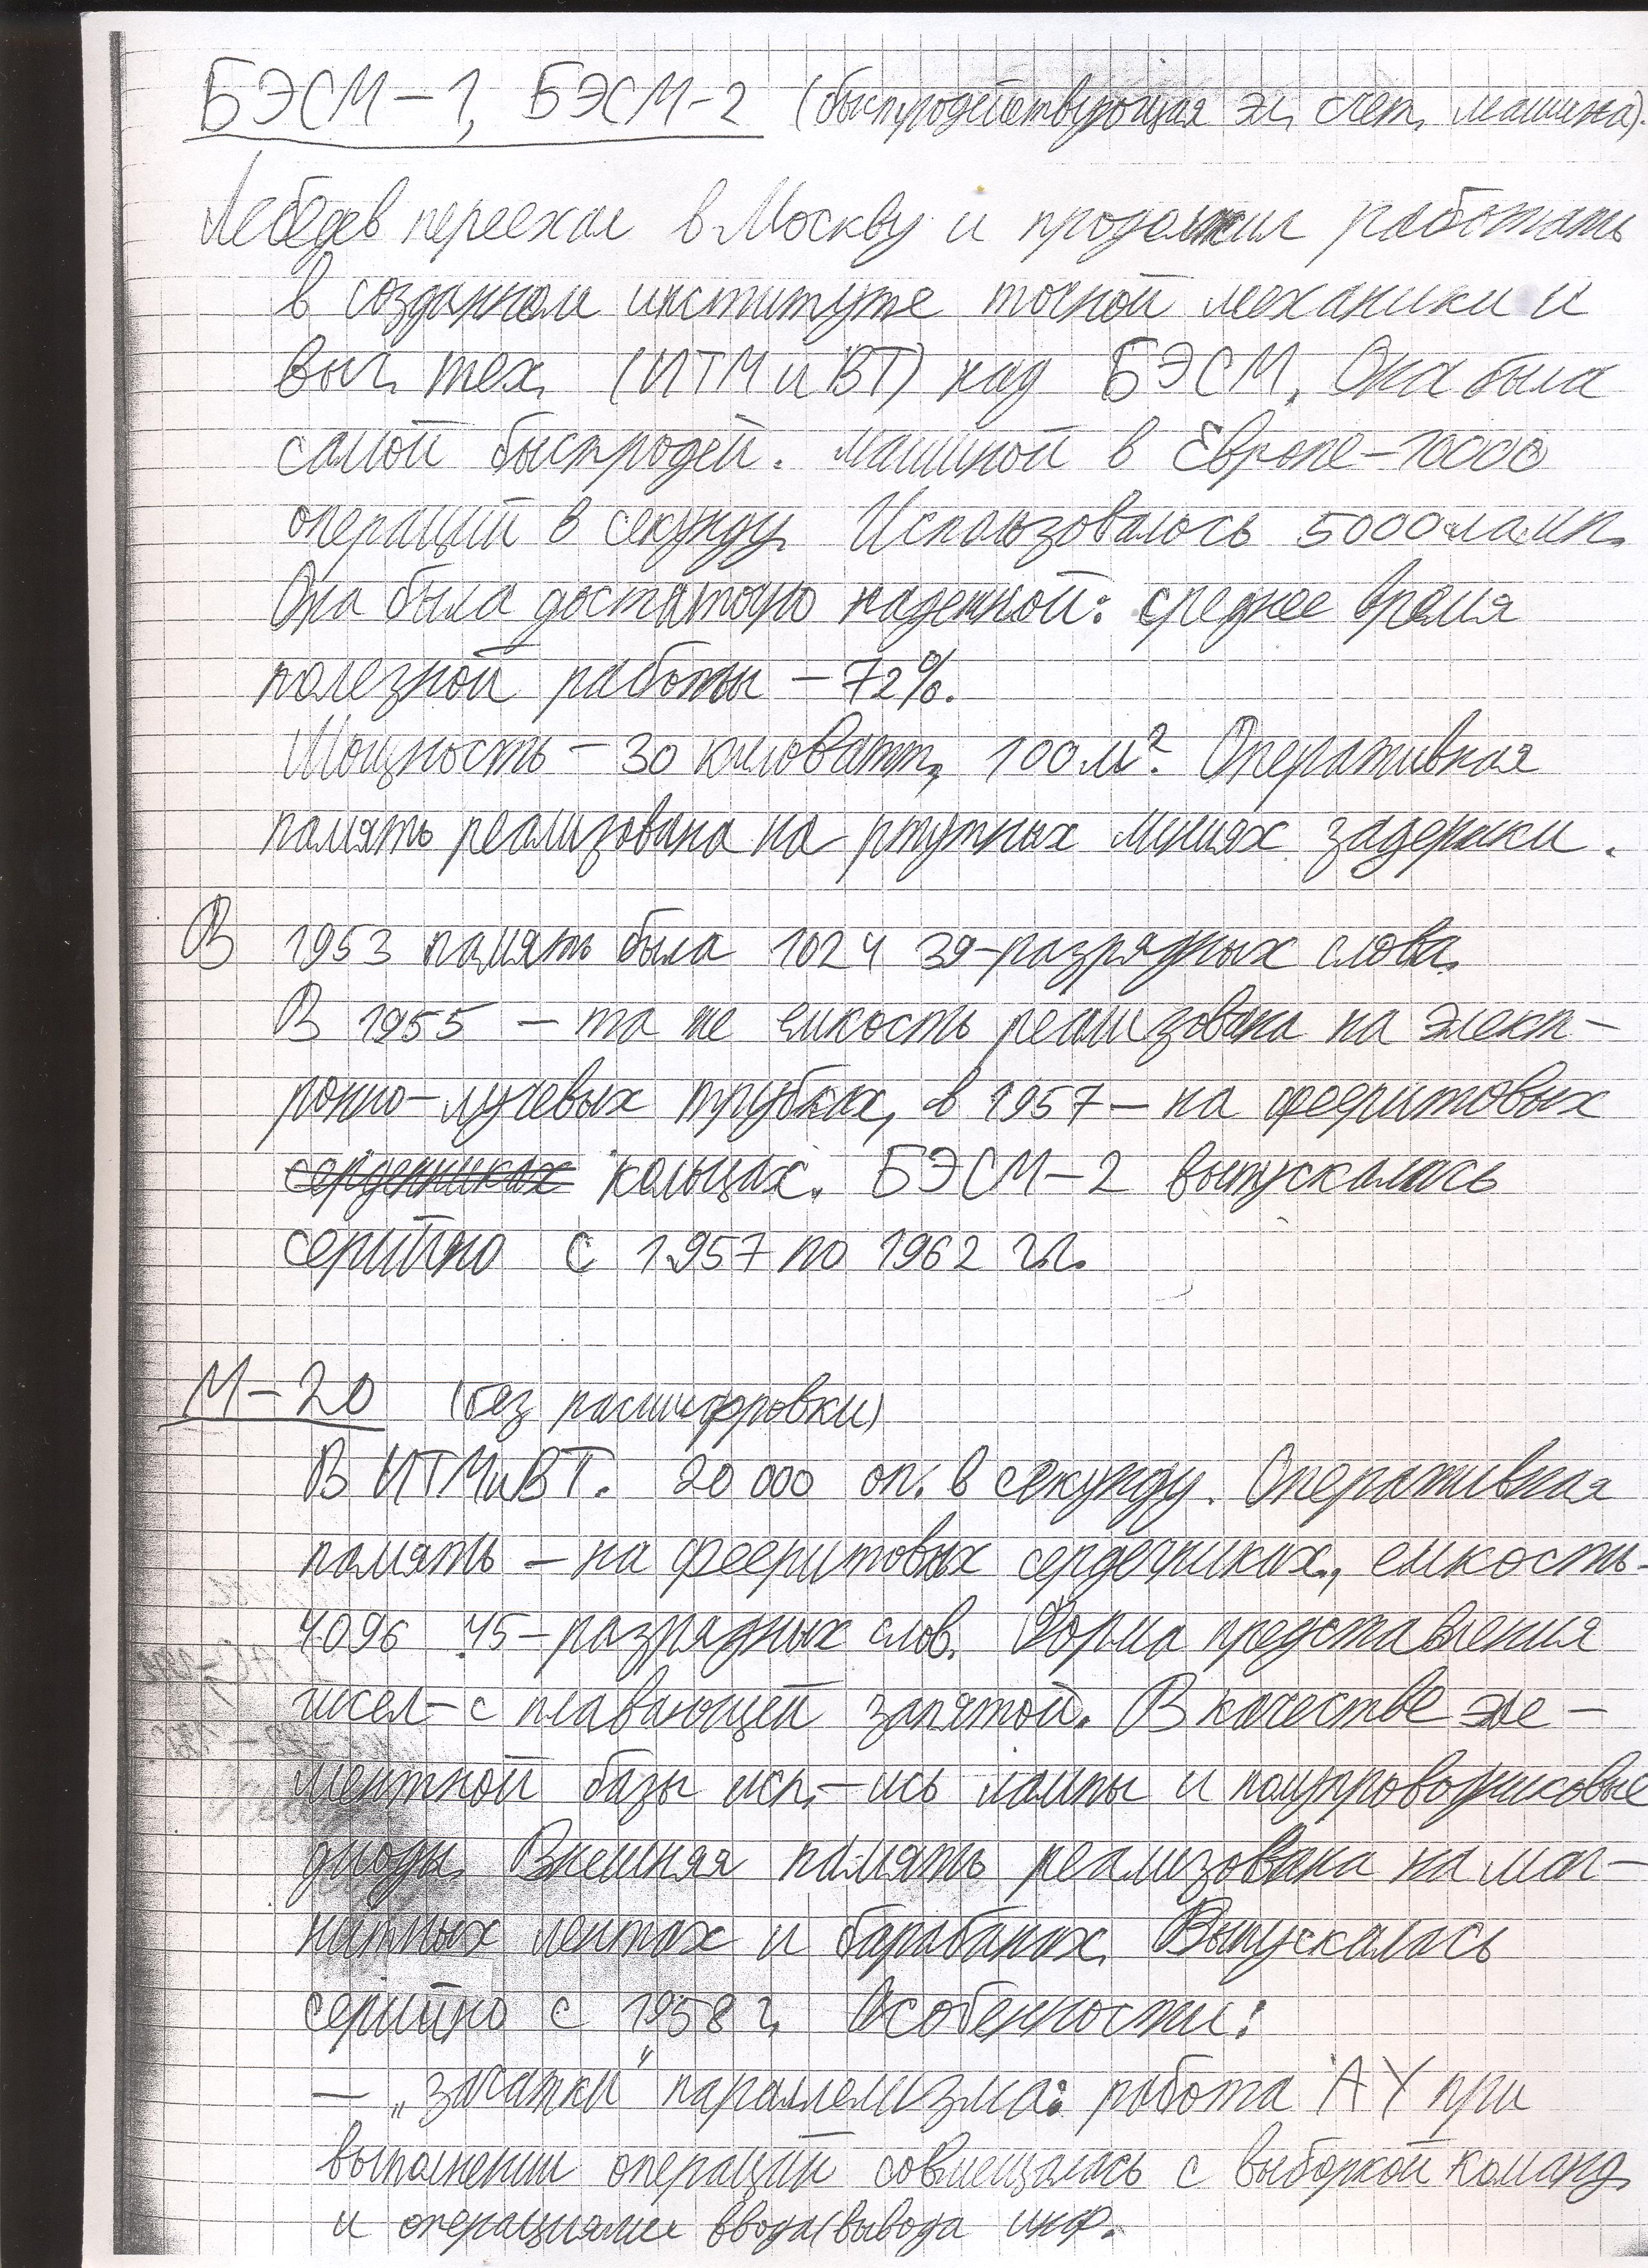 БЭСМ-1, БЭСМ-2 (быстродействующая эл. счет. машина).
Лебедев переехал в Москву и продолжил работать
в созданном институте точной механики и
выч. тех. (ИТМиВТ) над БЭСМ. Она была
самой быстродей. машиной в Европе-10000
операций в секунду. Использовалось 5000 ламп.
Она была достаточно надежной: среднее время
полезной работы - 72%.
Мощность - 30 киловатт, 100 м². Оперативная
память реализована на ртутных линиях задержки.
В 1953 память была 1024 39-разрядных слова.
В 1955 - та же емкость реализована на элект-
ронно-лучевых трубках, в 1957 - на ферритовых
сердечниках кольцах. БЭСМ-2 выпускалась
серийно с 1957 по 1962 г.г.
М-20 (без расшифровки)
В ИТМиВТ. 20 000 оп. в секунду. Оперативная
память - на ферритовых сердечниках, емкость-
4096 45-разрядных слов. Форма представления
чисел - с плавающей запятой. В качестве эле-
ментной базы исп.-ись лампы и полупроводниковые
диоды. Внешняя память реализована на маг-
нитных лентах и барабанах. Выпускалась
серийно с 1958 г. Особенности:
- „зачатки" параллелизма: работа АУ при
выполнении операций совмещалась с выборкой команд
и операциями ввода/вывода инф.